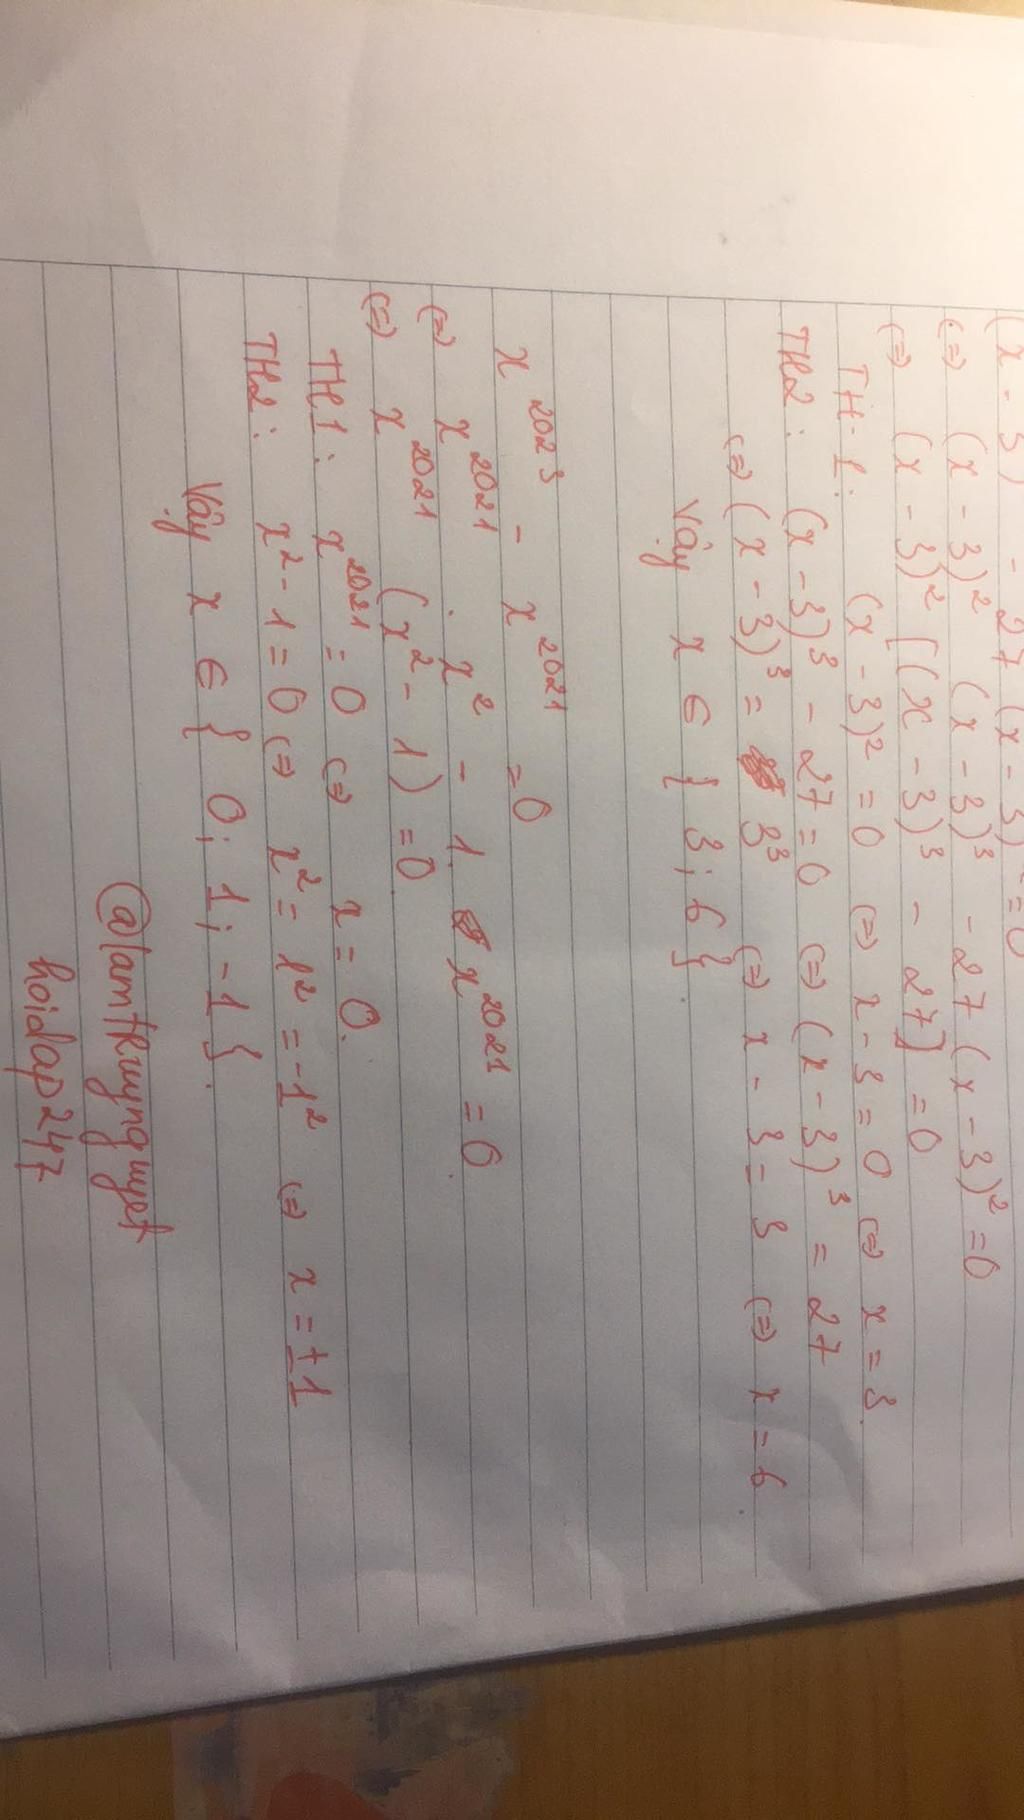 (x - 3) - 27 (x - 3) = 0
(=) (x - 3)² (x - 3)³ - 27 (x - 3)² = 0
(=) (x - 3)² [(x - 3)³ - 27] = 0
TH 1: (x - 3)² = 0 (=) x - 3 = 0 (=) x = 3.
TH2: (x - 3)³ - 27 = 0 (=) (x - 3)³ = 27
(=) (x - 3)³ = 3³ (=) x - 3 = 3 (=) x = 6.
Vậy x ∈ { 3; 6 }
x²⁰²³ - x²⁰²¹ = 0
(=) x²⁰²¹ . x² - 1. x²⁰²¹ = 0
(=) x²⁰²¹ (x² - 1) = 0
TH1: x²⁰²¹ = 0 (=) x = 0.
TH2: x² - 1 = 0 (=) x² = 1² = -1² (=) x = ±1
Vậy x ∈ { 0; 1; -1 }.
@lamtruynguyet
hoidap247